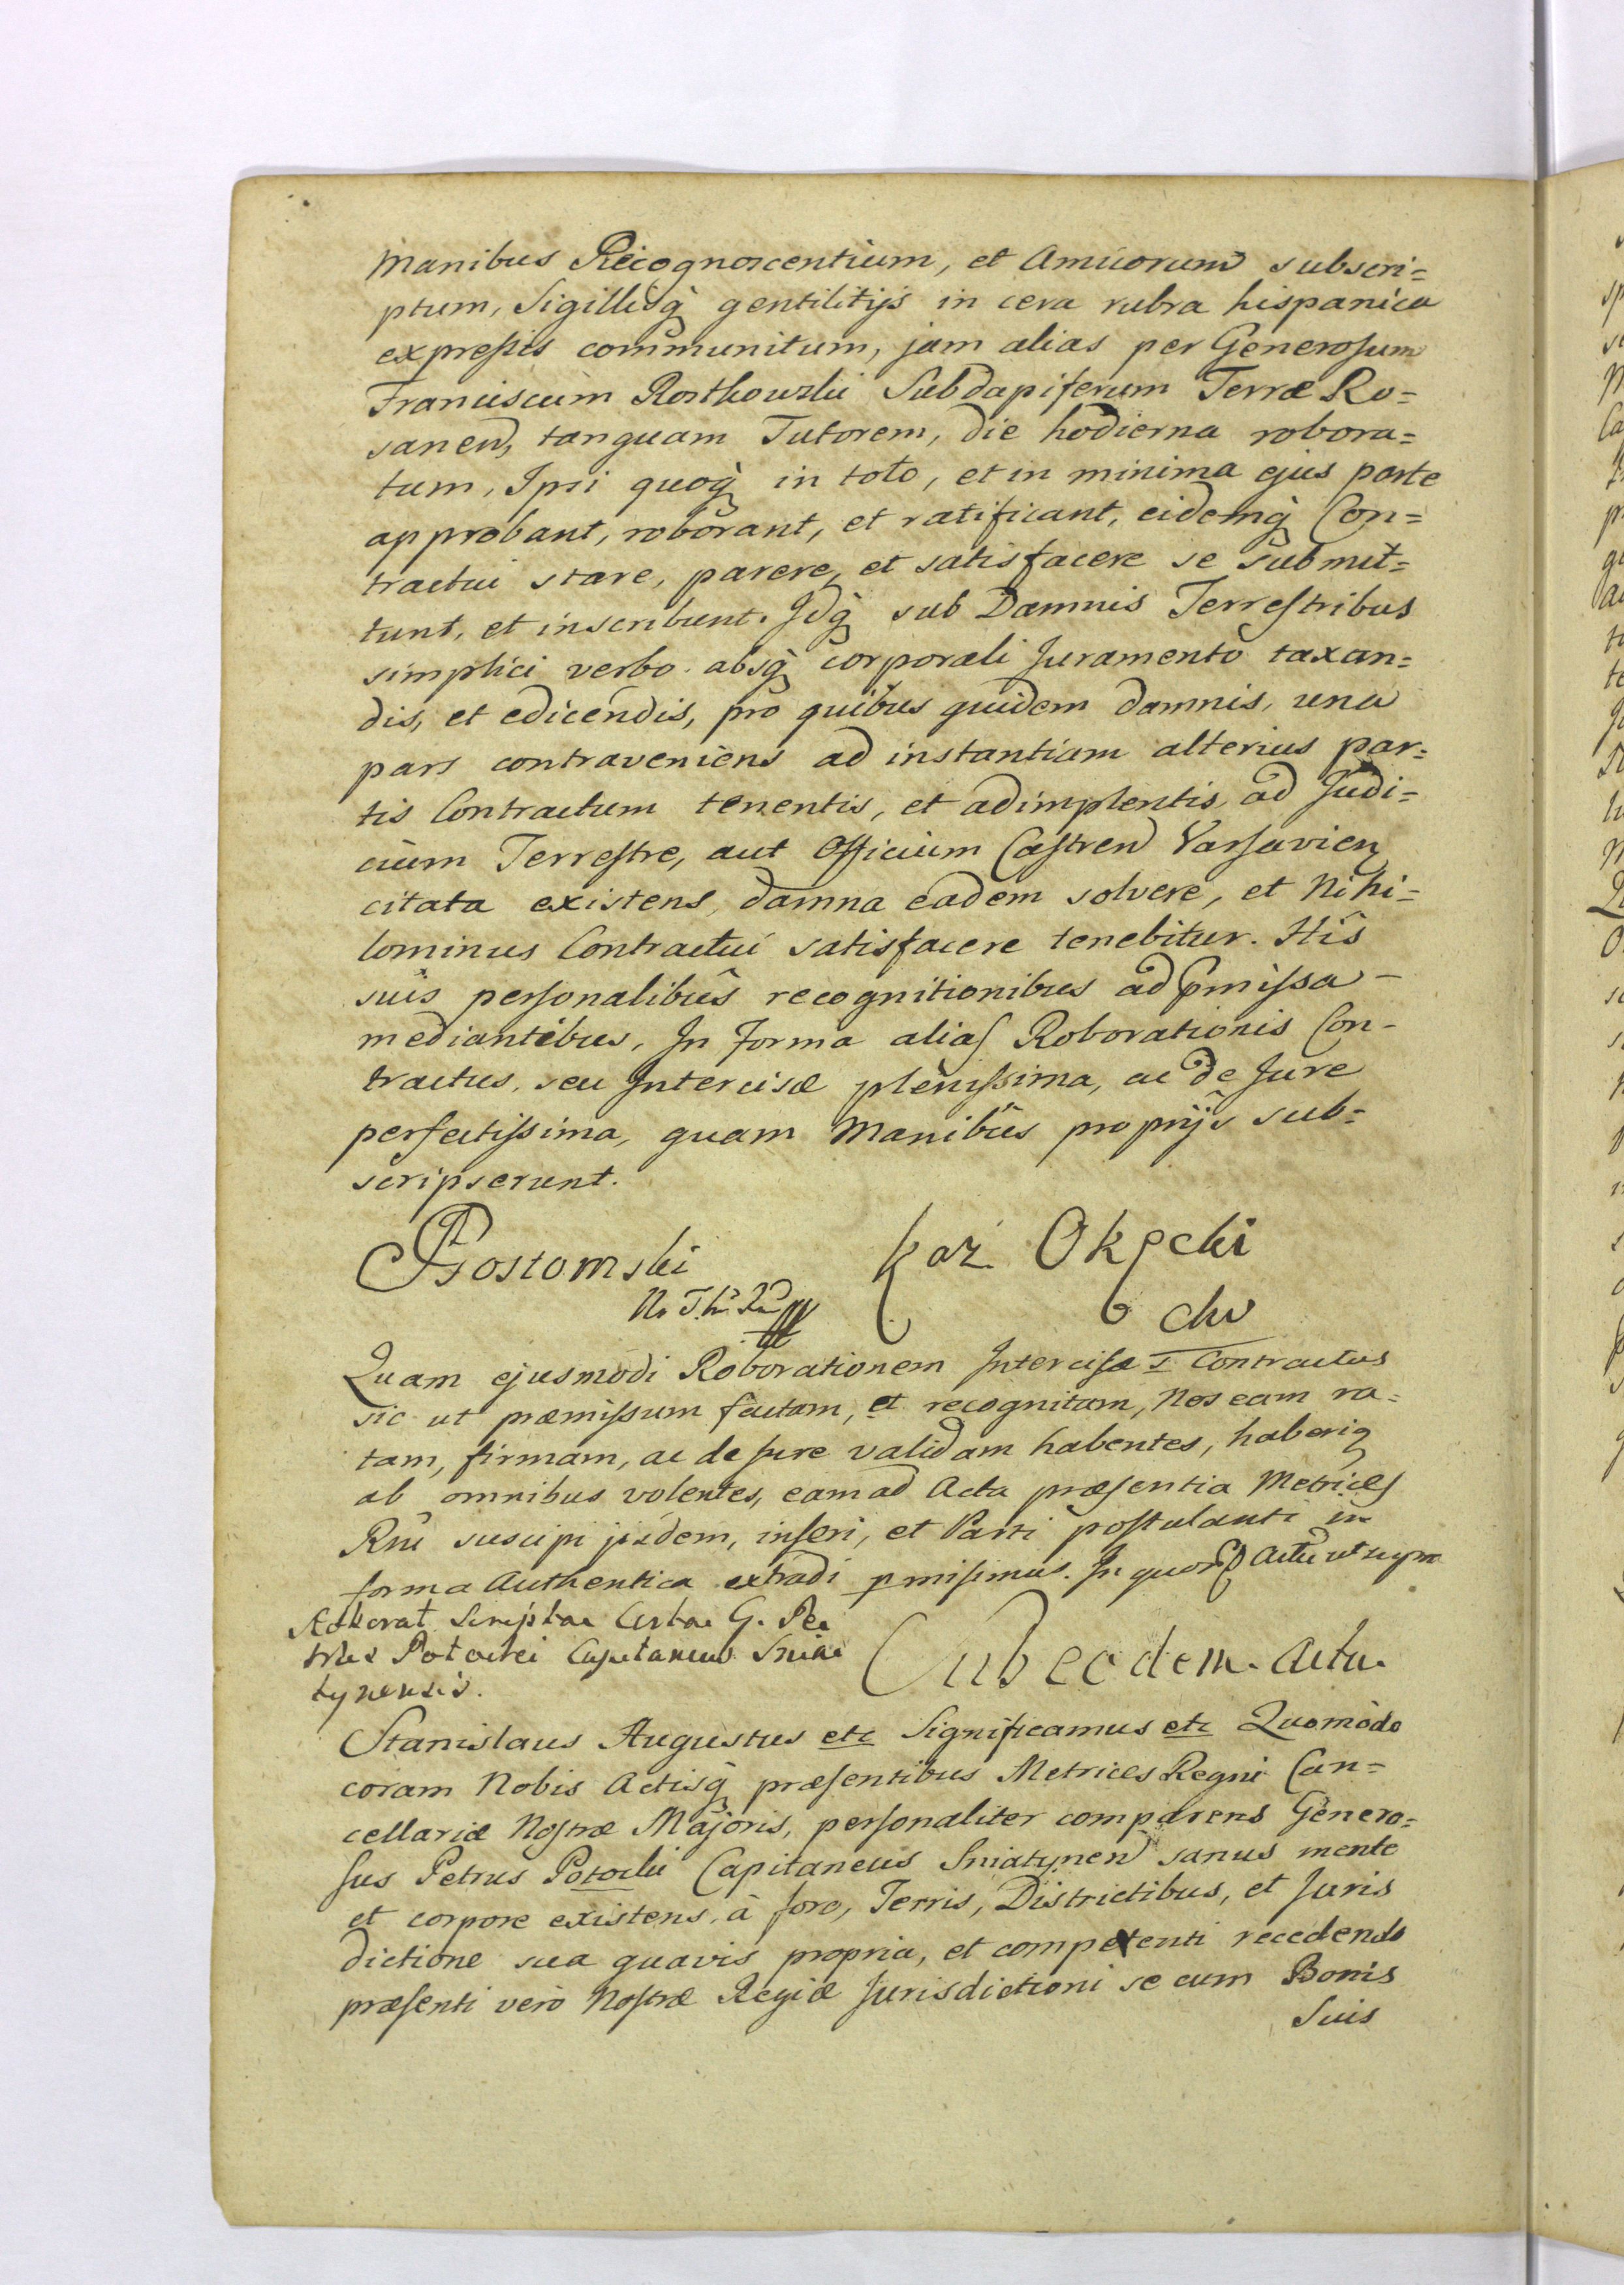 Manibus Recognoscentium, et Amicorum subscri=
ptum, Sigillisq̀ gentilitijs in cera rubra hispanica
expressis communitum, jam alias per Generosum
Franciscum Rostkowski Subdapiferum Terræ Ro=
sanen, tanquam Tutorem, die hodierna robora=
tum, Ipsi quoq̀ in toto, et in minima ejus parte
approbant, roborant, et ratificant, eidemq̀ Con=
tractui stare, parere, et satisfacere se submit=
tunt, et inscribunt. Idq̀ sub Damnis Terrestribus
simplici verbo absq̀ corporali Juramento taxan=
dis, et edicendis, pro quibus quidem damnis, una
pars contraveniens ad instantiam alterius par=
tis Contractum tenentis, et adimplentis, ad Judi=
cium Terrestre, aut Officium Castren Varsavien
citata existens, damna eadem solvere, et Nihi=
lominus Contractui satisfacere tenebitur. His
suis personalibus recognitionibus ad pmissa
mediantibus, In forma alias Roborationis Con-
tractus, seu Intercisæ plenissima, ac de Jure
perfectissima, quam Manibus proprijs sub=
scripserunt.
Gostomski Kaź Okęcki
chw
Quam ejusmodi Roborationem Intercisæ Contractus
sic ut præmissum factam, et recognitam, Nos eam ra=
tam, firmam, ac de Jure validam habentes, haberiq
ab omnibus volentes, eam ad Acta præsentia Metrices
Rni suscipi ibidem, inseri, et Parti postulanti in
forma Authentica extradi pmisimus. In quor Actu ut supra
Roborat Scriptae Certae G. Pe
trus Potocki Capitaneus Snia
tynensis.
Sub eodem Actu.
Stanislaus Augustus etc Significamus etc Quomodo
coram Nobis Actisq̀ præsentibus Metrices Regni Can=
cellariæ Nostræ Majoris, personaliter comparens Genero=
sus Petrus Potocki Capitaneus Sniatynen sanus mente
et corpore existens, à foro, Terris, Districtibus, et Juris
dictione sua quavis propria, et competenti recedendo
præsenti verò Nostræ Regiæ Jurisdictioni se cum Bonis
Suis